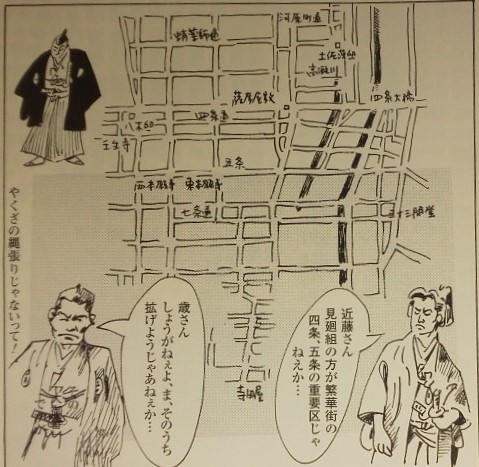 河原町通
蛸薬師通
土佐藩邸
高瀬川
薩摩屋敷
四条大橋
八木邸
四条通
壬生寺
五条
西本願寺
東本願寺
七条通
三十三間堂
寺田屋
近藤さん
見廻組の方が繁華街の
四条、五条の重要区じゃ
ねえか…
歳さん
しょうがねぇよ、ま、そのうち
拡げようじゃあねぇか…
やくざの縄張りじゃないって!